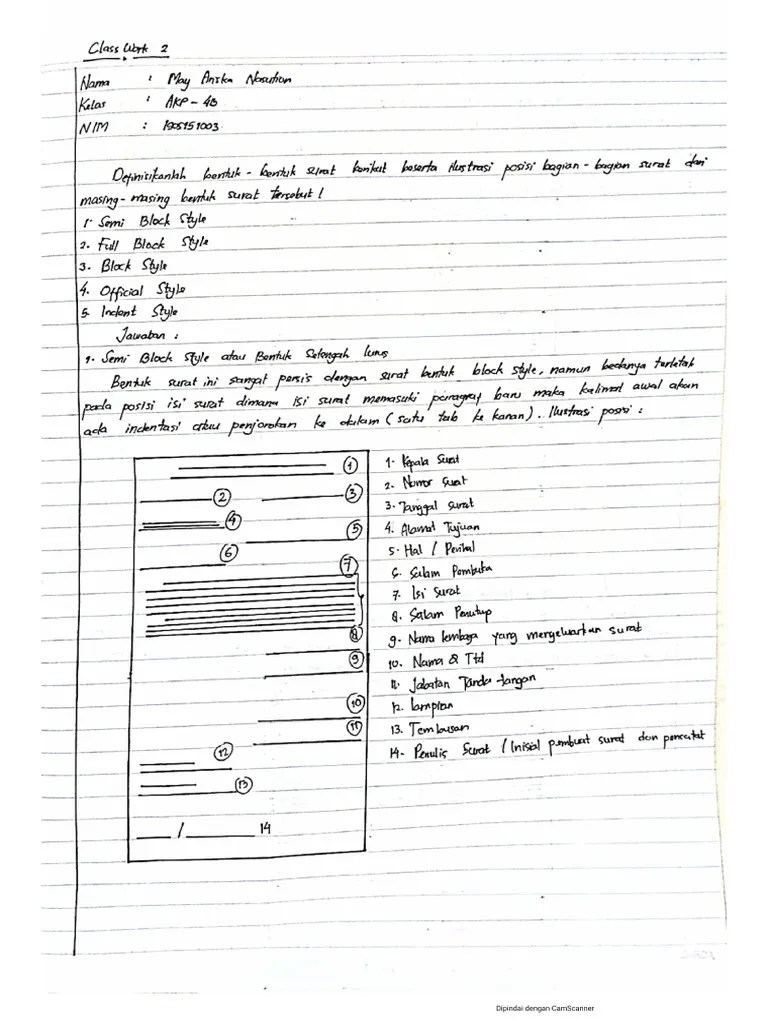 Class Work 2
Nama : May Aniska Nasution
Kelas : AKP - 4B
NIM : 1905151003
Definisikanlah bentuk - bentuk surat berikut beserta ilustrasi posisi bagian - bagian surat dari
masing - masing bentuk surat tersebut !
1. Semi Block Style
2. Full Block Style
3. Block Style
4. Official Style
5. Indent Style
Jawaban :
1. Semi Block Style atau Bentuk Setengah lurus
Bentuk surat ini sangat persis dengan surat bentuk block style, namun bedanya terletak
pada posisi isi surat dimana isi surat memasuki paragraf baru maka kalimat awal akan
ada indentasi atau penjorokan ke dalam ( satu tab ke kanan ). Ilustrasi posisi :
1
2 3
4
5
6
7
8
9
10
11
12
13
/ 14
1. Kepala Surat
2. Nomor Surat
3. Tanggal surat
4. Alamat Tujuan
5. Hal / Perihal
6. Salam Pembuka
7. Isi Surat
8. Salam Penutup
9. Nama lembaga yang mengeluarkan surat
10. Nama & Ttd
11. Jabatan Tanda-tangan
12. lampiran
13. Tembusan
14. Penulis Surat / Inisial pembuat surat dan pencatat
Dipindai dengan CamScanner